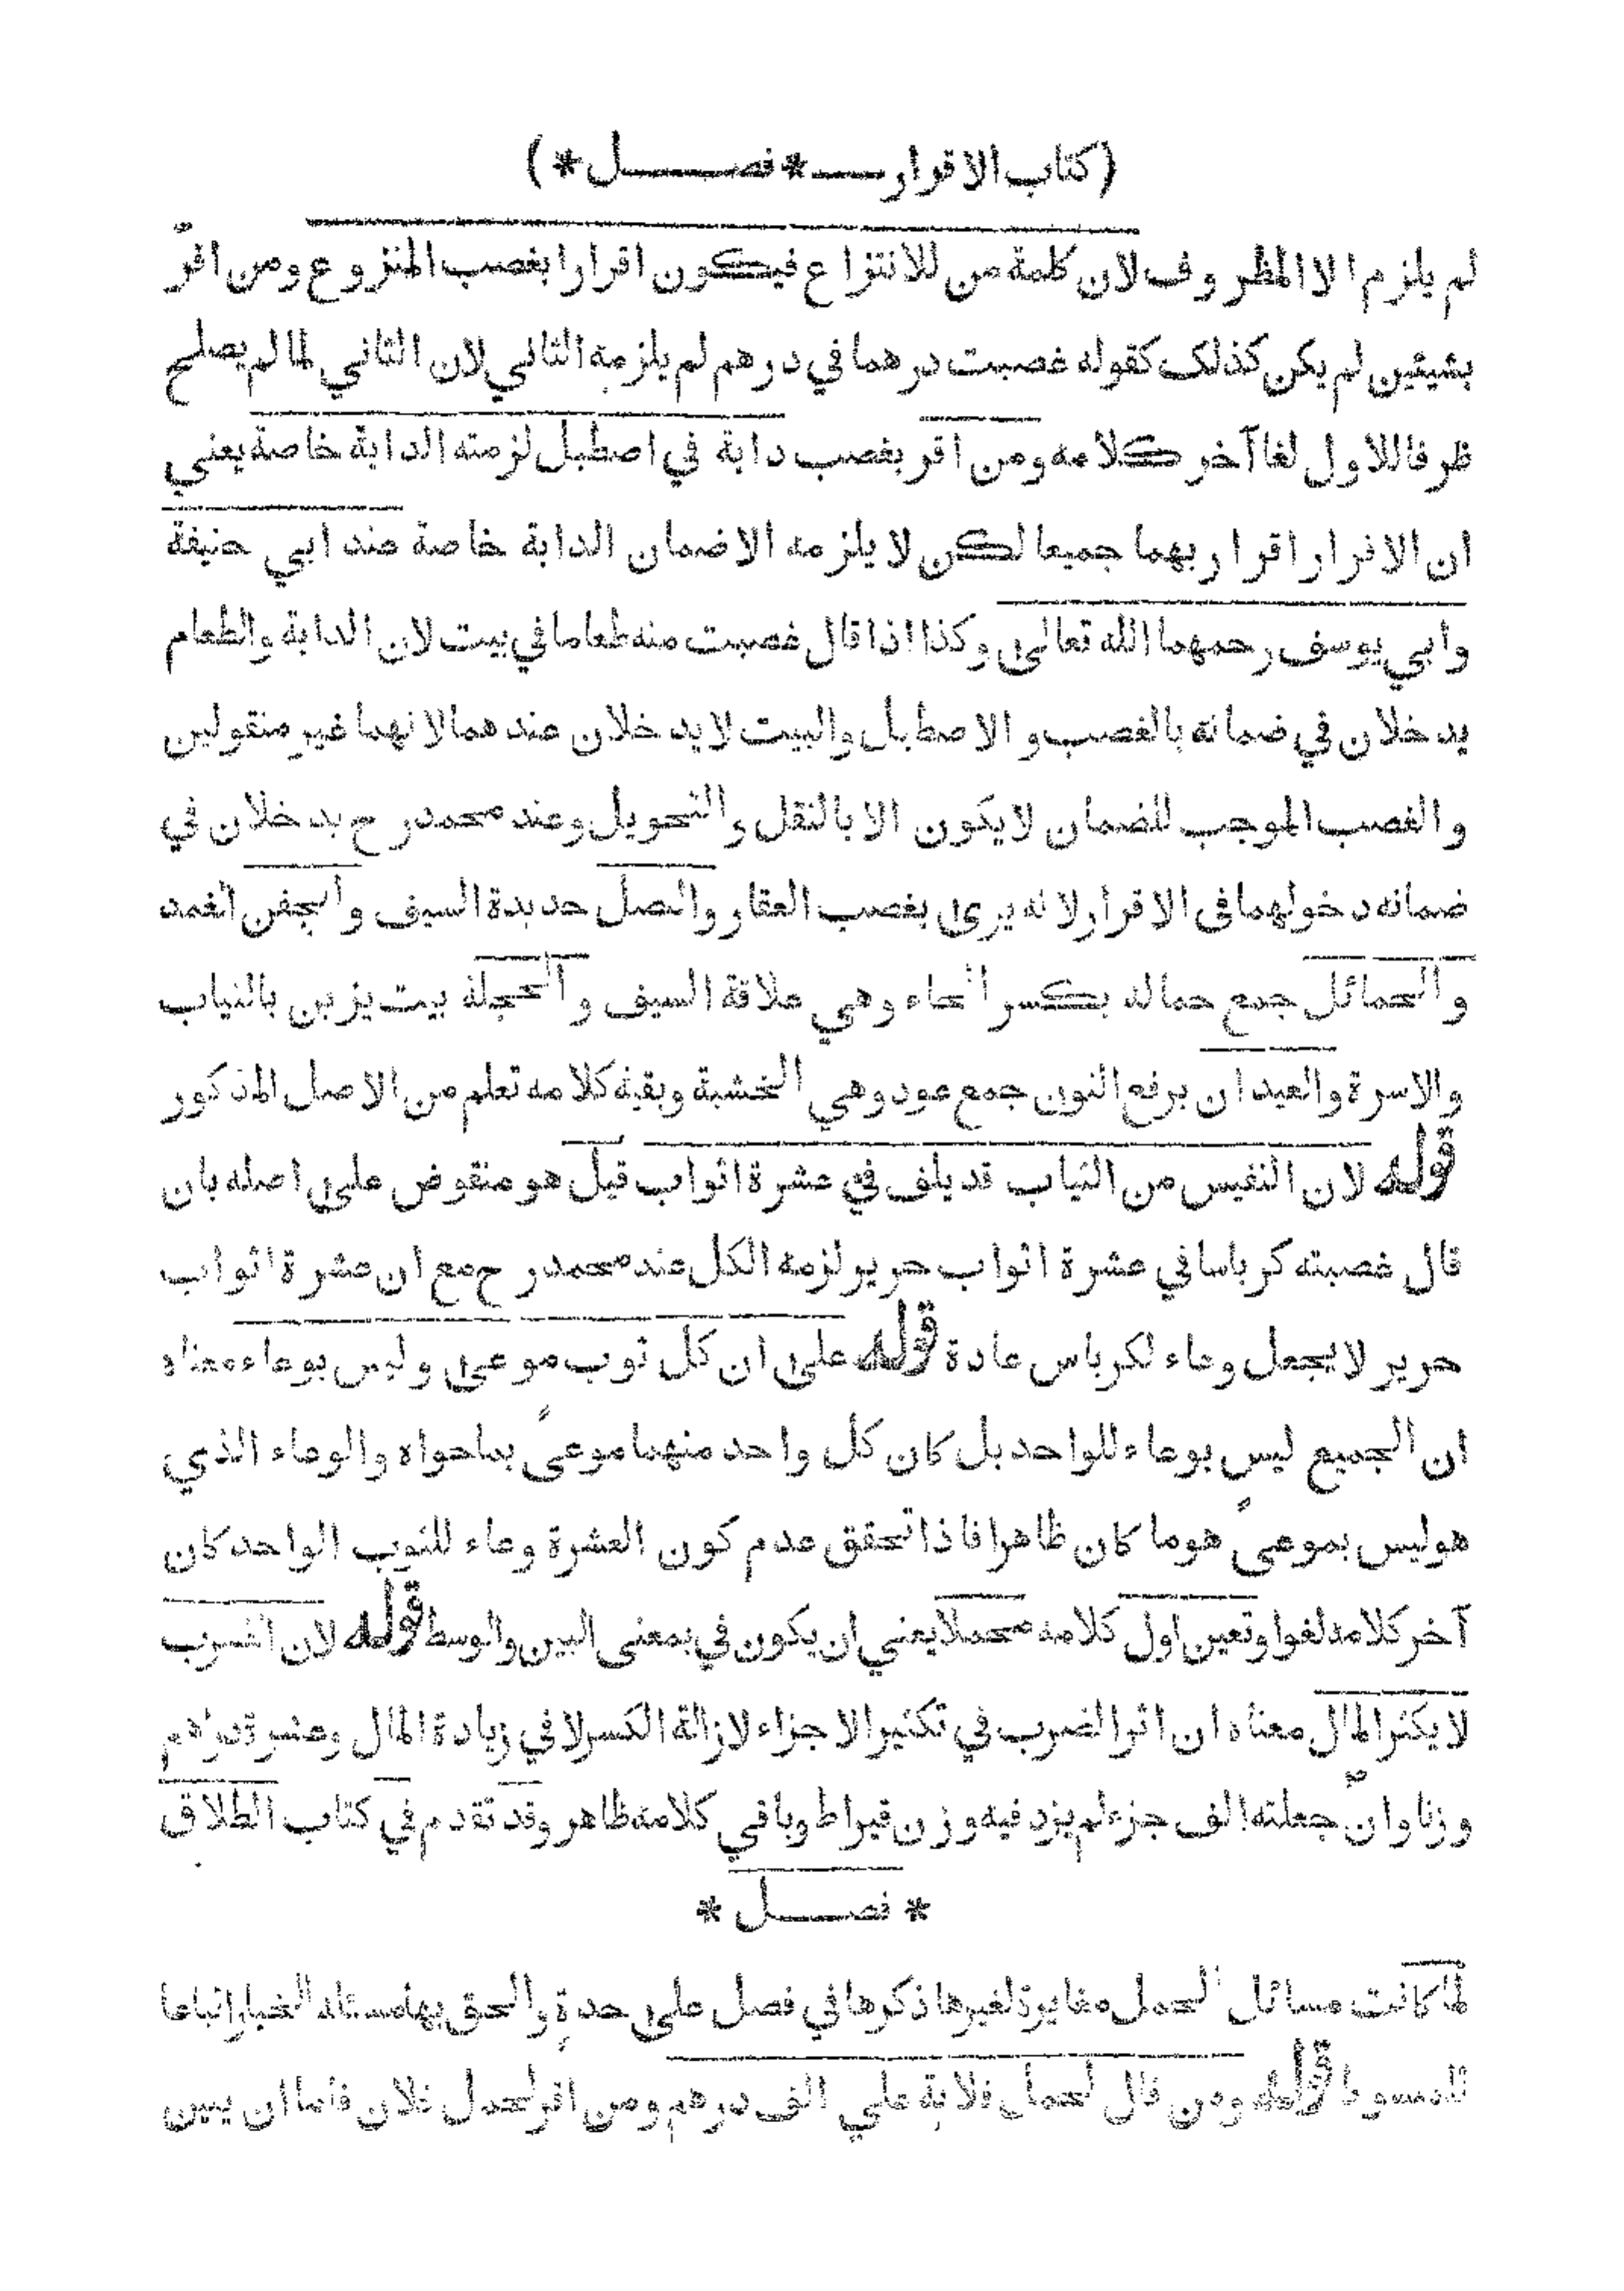 (كتاب الاقرار — * فصل *)
لم يلزم الا المظروف لان كلمة من للانتزاع فيكون اقرارا بغصب المنزوع ومن اقرّ
بشيئين لم يكن كذلك كقوله غصبت درهما في درهم لم يلزمه الثاني لان الثاني لما لم يصلح
ظرفا للاول لغا آخر كلامه ومن اقر بغصب دابة في اصطبل لزمته الدابة خاصة يعني
ان الاقرار اقرار بهما جميعا لكن لا يلزمه الا ضمان الدابة خاصة عند ابي حنيفة
وابي يوسف رحمهما الله تعالى وكذا اذا قال غصبت منه طعاما في بيت لان الدابة والطعام
يدخلان في ضمانه بالغصب والاصطبل والبيت لا يدخلان عندهما لانهما غير منقولين
والغصب الموجب للضمان لا يكون الا بالنقل والتحويل وعند محمد رح يدخلان في
ضمانه دخولهما في الاقرار لانه يرى بغصب العقار والنصل حديدة السيف والجفن الغمد
والحمائل جمع حمالة بكسر الحاء وهي علاقة السيف والحجلة بيت يزين بالثياب
والاسرة والعيدان برفع النون جمع عود وهي الخشبة وبقية كلامه تعلم من الاصل المذكور
قوله لان النفيس من الثياب قد يلف في عشرة اثواب قيل هو منقوض على اصله بان
قال غصبته كرباسا في عشرة اثواب حرير لزمه الكل عند محمد رح مع ان عشرة اثواب
حرير لا يجعل وعاء لكرباس عادة قوله على ان كل ثوب موعى وليس بوعاء معناه
ان الجميع ليس بوعاء للواحد بل كان كل واحد منهما موعىً بما حواه والوعاء الذي
هو ليس بموعىً هو ما كان ظاهرا فاذا تحقق عدم كون العشرة وعاء للثوب الواحد كان
آخر كلامه لغوا وتعين اول كلامه محملا يعني ان يكون في بمعنى البين والوسط قوله لان الضرب
لا يكثر المال معناه ان اثر الضرب في تكثير الاجزاء لازالة الكسر لا في زيادة المال وعشرة دراهم
وزنا وان جعلته الف جزء لم يزد فيه وزن قيراط وباقي كلامه ظاهر وقد تقدم في كتاب الطلاق
* فصل *
لما كانت مسائل الحمل مغايرة لغيرها ذكرها في فصل على حدةٍ والحق بها مسئلة الخيار اتباعا
للمبسوط قوله ومن قال لحمل فلانة علي الف درهم ومن اقر لحمل فلان فاما ان يبين